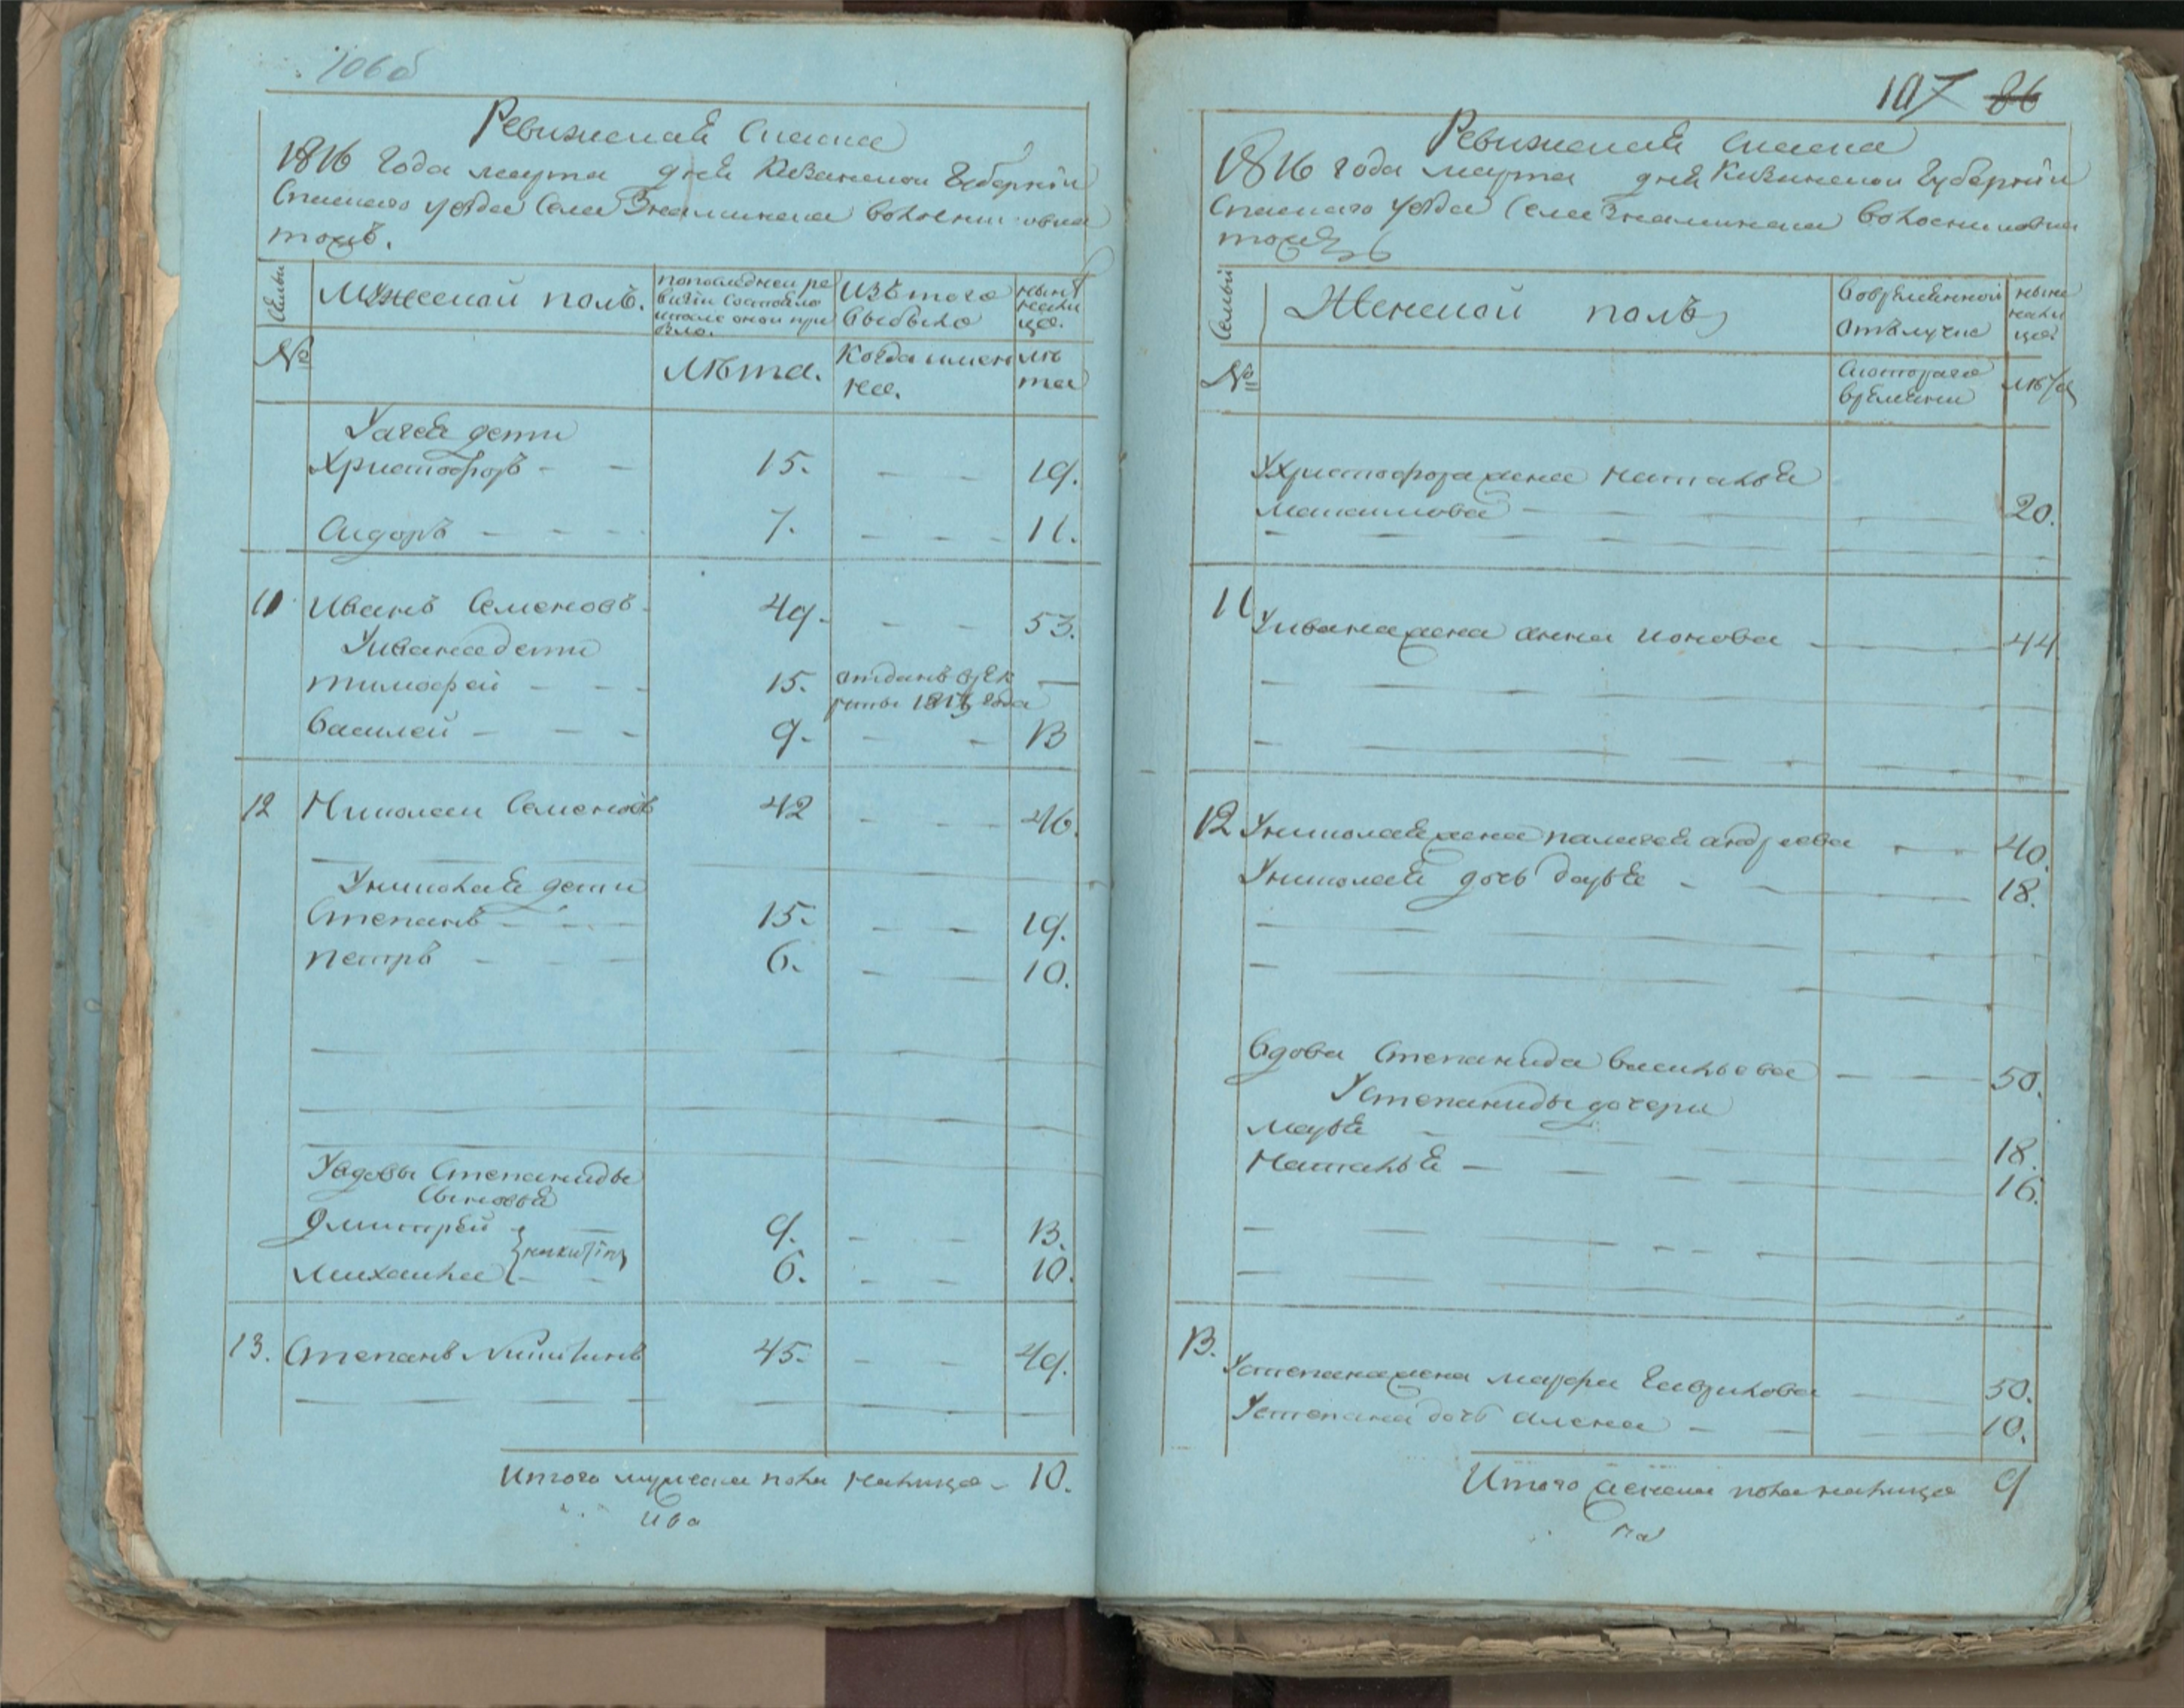 106б
Ревижская Сказка
1816 года марта дня Казанской Губернїи
Спаскаго уезда Села Знаминска волости
Семьи
Мужеской полъ.
По последней ре
визїи состояло
и после оной при
было.
Изъ того
выбыло
ныне
нали
цо.
№
Лѣта.
Когда имен
но.
лѣ
та
дети
Христофоръ - - 15. - - 19.
Сидоръ - - - 7. - - - 11.
11 Иванъ Семеновъ 49. - - 53.
У Ивана дети
Тимофей - - - 15. отданъ в рек
руты года
Василей - - - 9. - - 13
12 Николаи Семеновъ 42 - - 46.
У Николая дети
Степанъ - - - 15. - - 19.
Петръ - - - 6. - - 10.
У вдовы Степаниды
Сыновья
Дмитрей - 9. - - 13.
Никитины
Михаила - - 6. - - 10.
13. Степанъ Никитинъ 45. - - 49.
Итого мужска пола налицо - 10.
Ива
107 86
Ревижская Сказка
1816 года марта дня Казанской Губернїи
Спаскаго уезда Села Знаминска волости
Семьи
Женской полъ
Во времѣнной
отълучке
ныне
нали
цо.
№
С котораго
времѣни
лѣта
У Христофора жена Наталья
Максимова - - - 20.
11 У Ивана жена Анна Ионова - 44
12 У Николая жена Палагея Андреева - - 40.
У Николая дочь Дарья - - 18.
Вдова Степанида Васильева - - 50.
У Степаниды дочери
Марья - - 18.
Наталья - - - 16.
13.
У Степана жена Марфа Гаврилова - 50.
У Степана дочь Алена - - - 10.
Итого женска пола налицо 9